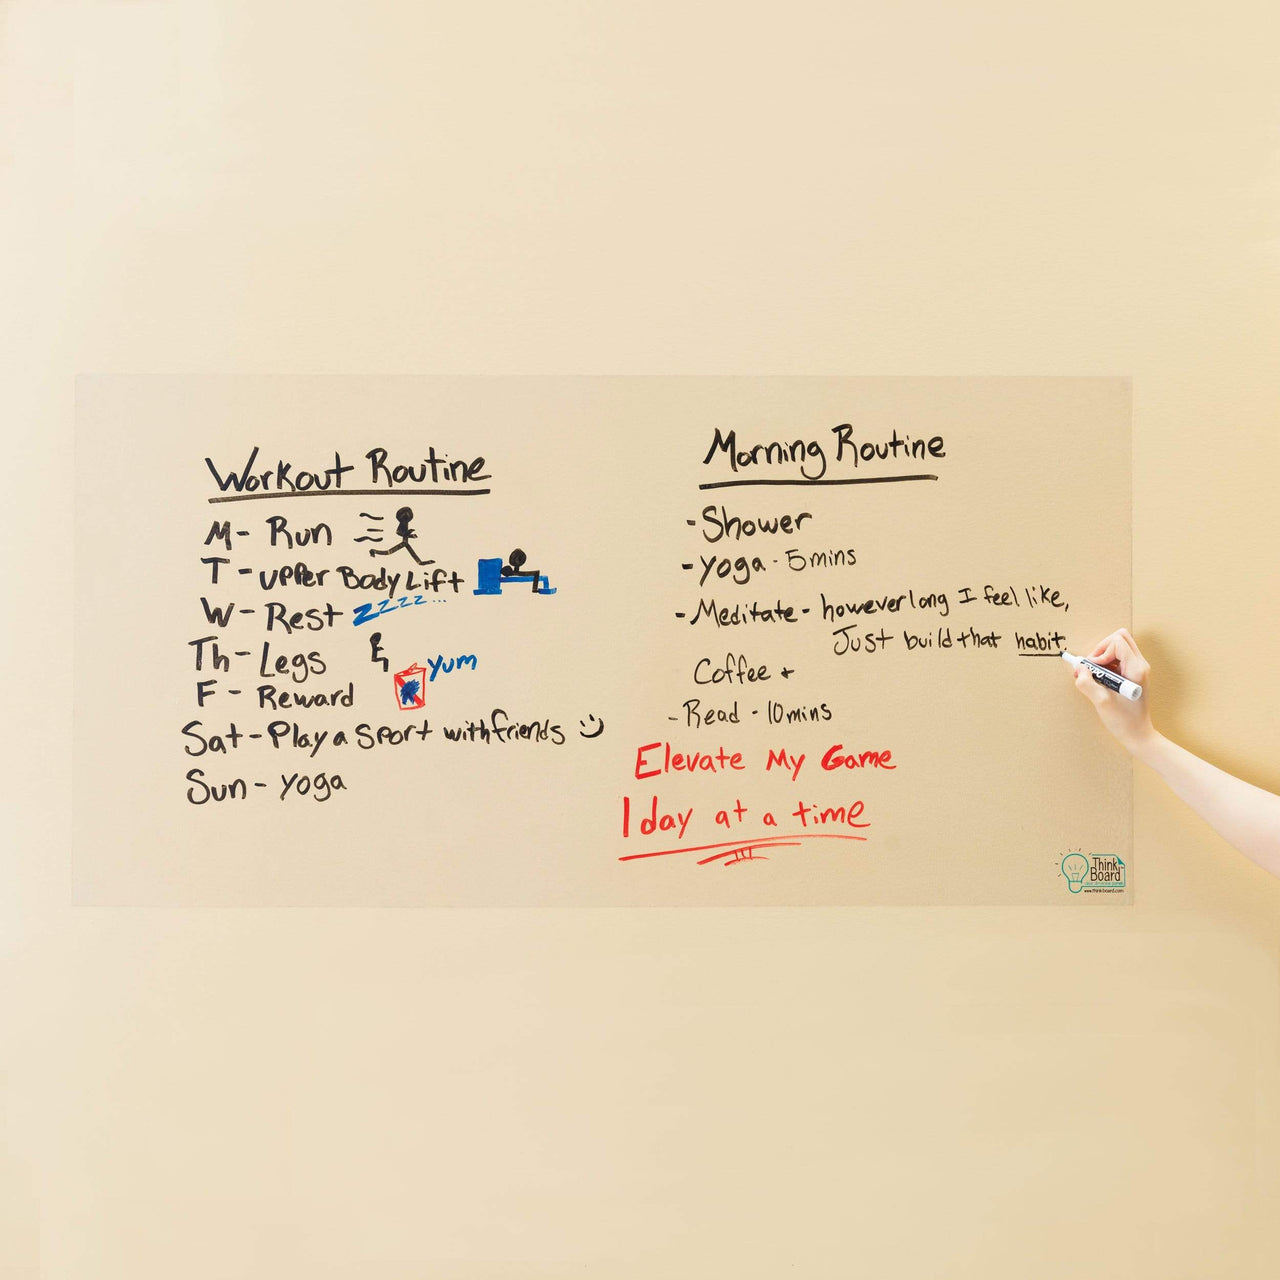 Workout Routine
M- Run
T - upper Body Lift
W- Rest zzzz...
Th- Legs
F - Reward yum
Sat- Play a Sport with friends
Sun- yoga
Morning Routine
- Shower
- yoga - 5 mins
- Meditate - however long I feel like,
Just build that habit.
Coffee +
- Read - 10 mins
Elevate My Game
1 day at a time
Think
Board
www.think-board.com